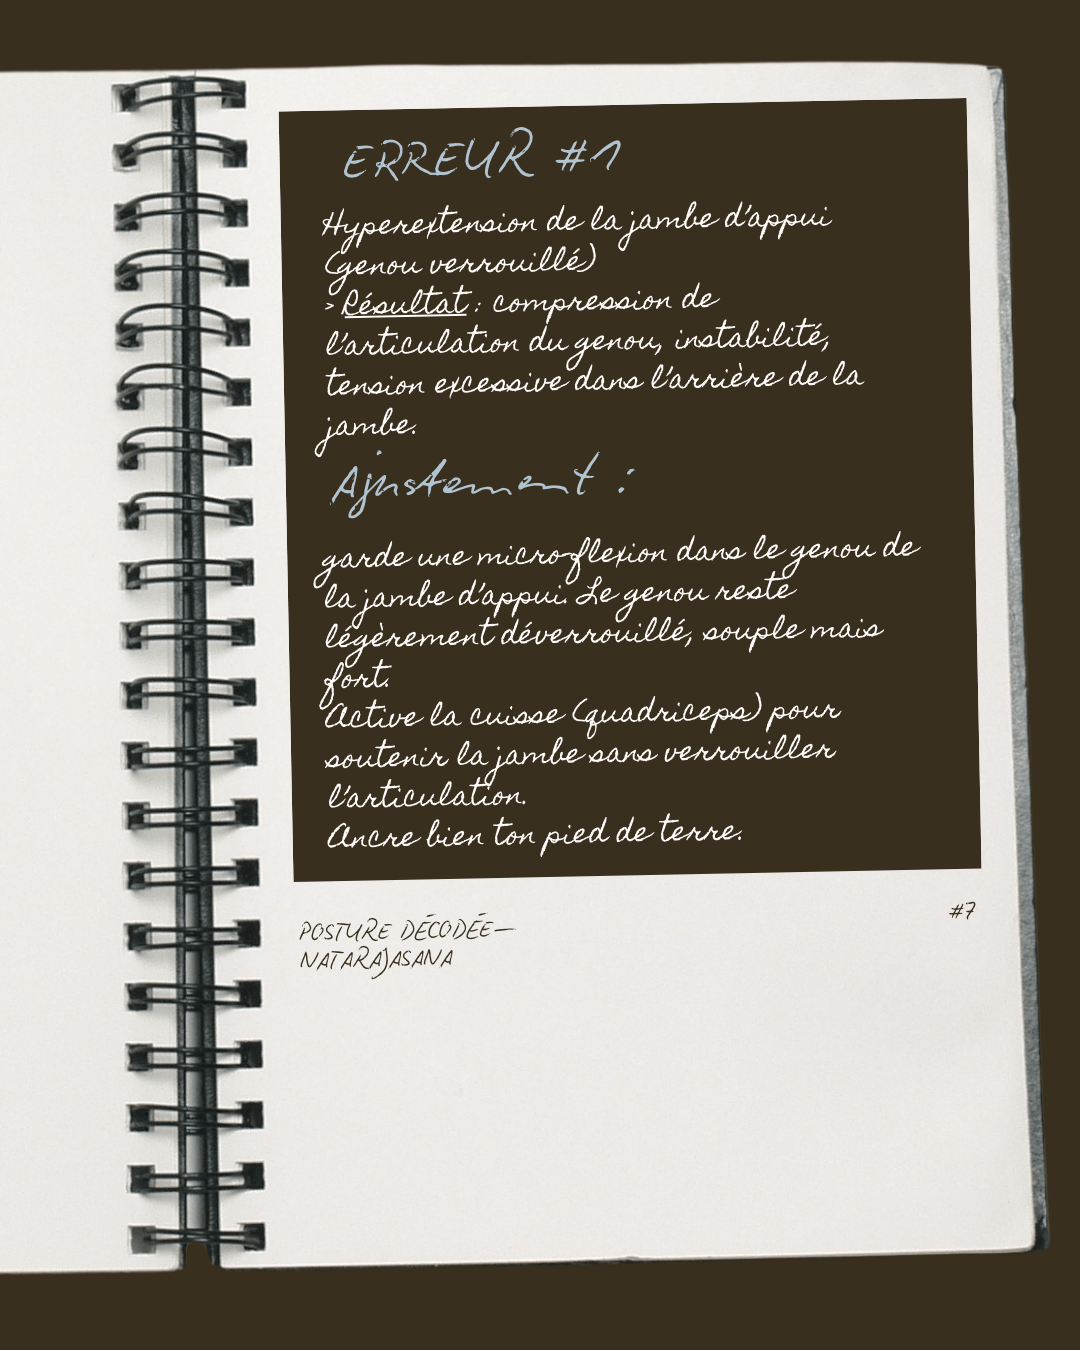 ERREUR #1
Hyperextension de la jambe d'appui
(genou verrouillé)
> Résultat : compression de
l'articulation du genou, instabilité,
tension excessive dans l'arrière de la
jambe.
Ajustement :
garde une micro-flexion dans le genou de
la jambe d'appui. Le genou reste
légèrement déverrouillé, souple mais
fort.
Active la cuisse (quadriceps) pour
soutenir la jambe sans verrouiller
l'articulation.
Ancre bien ton pied de terre.
#7
POSTURE DÉCODÉE—
NATARAJASANA